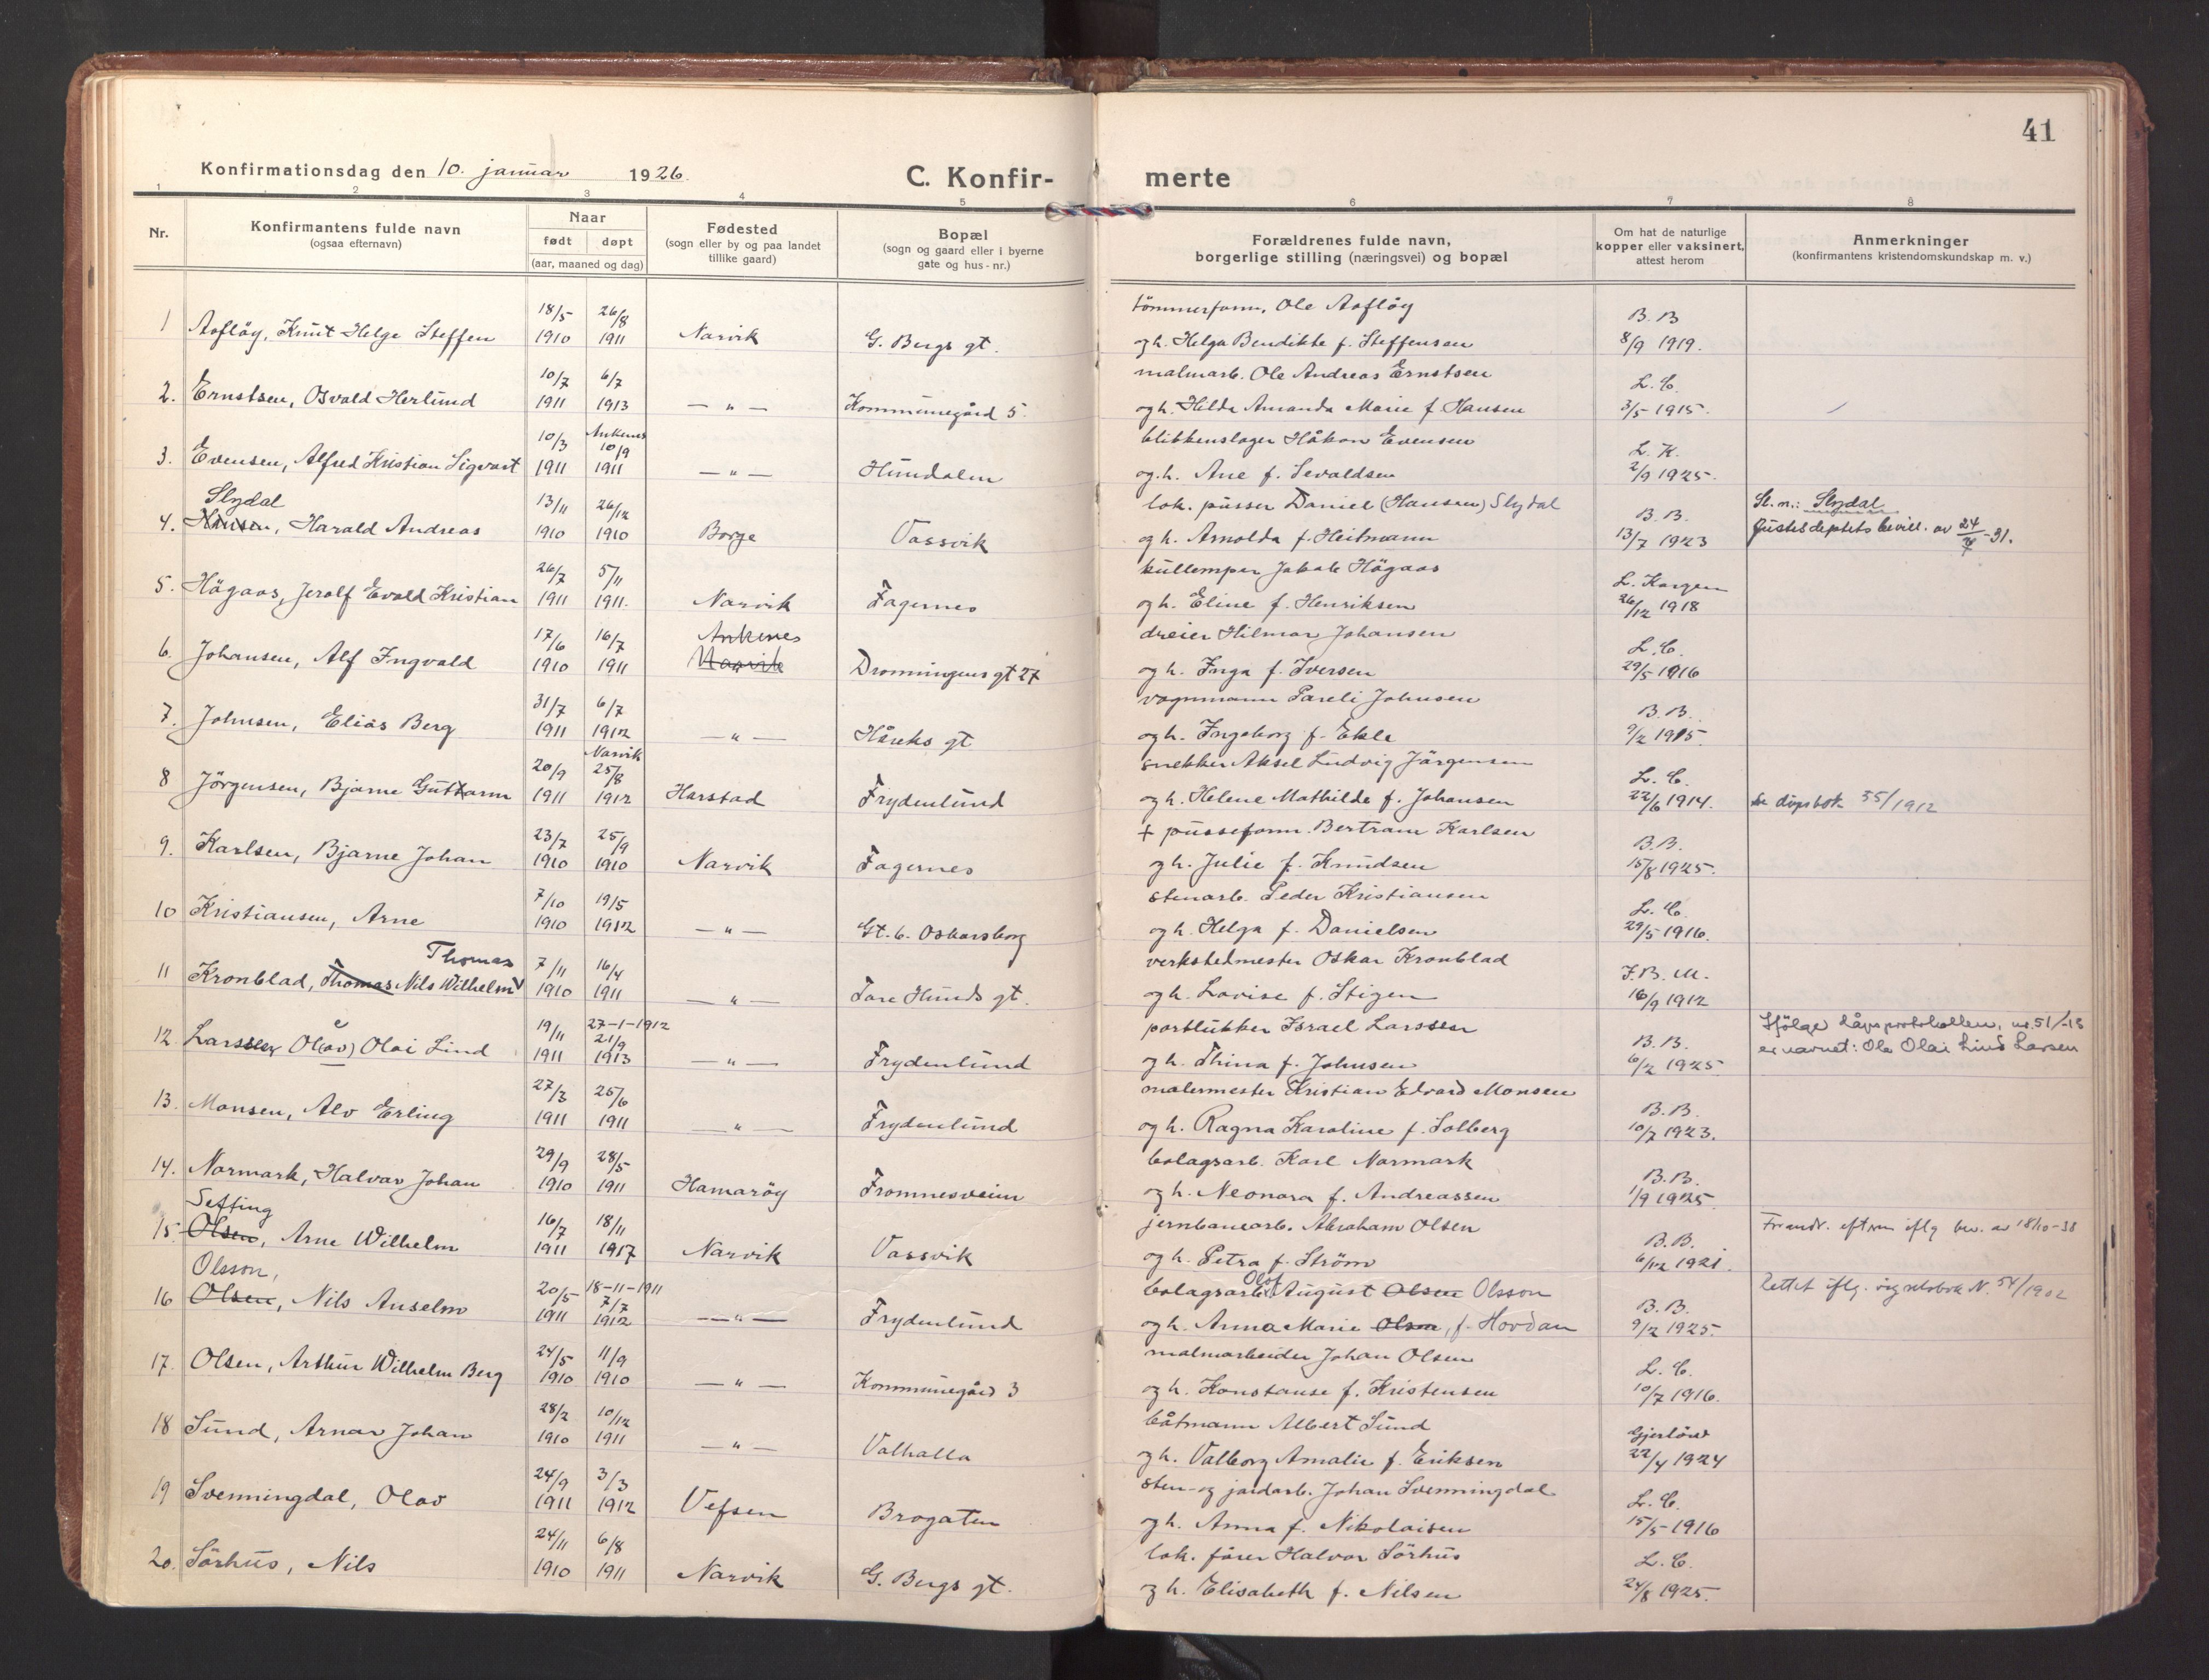 41
Konfirmationsdag den 10. januar 1926.
C. Konfir-
merte
1 2 3 4 5 6 7 8
Nr.
Konfirmantens fulde navn
(ogsaa efternavn)
Naar
født døpt
(aar, maaned og dag)
Fødested
(sogn eller by og paa landet
tillike gaard)
Bopæl
(sogn og gaard eller i byerne
gate og hus-nr.)
Forældrenes fulde navn,
borgerlige stilling (næringsvei) og bopæl
Om hat de naturlige
kopper eller vaksinert,
attest herom
Anmerkninger
(konfirmantens kristendomskundskap m. v.)
18/5 26/8 tömmerform, Ole Aafløy B. B
1 Aafløy, Knut Helge Steffen 1910 1911 Narvik G. Bergs gt. og h. Helga Bendikte f. Steffensen 8/9 1919.
10/7 6/7 malmarb. Ole Andreas Ernstsen L. C.
2. Ernstsen, Osvald Herlund 1911 1913 — " — Kommunegård 5. og h. Hilda Amanda Marie f. Hansen 3/5 1915.
10/3 Ankenes 10/9 blikkenslager Håkon Evensen L. K.
3. Evensen, Alfred Kristian Sigvart 1911 1911 — " — Hundalen og h. Ane f. Sevaldsen 2/9 1925.
Slydal 13/11 26/12 lok. pusser Daniel (Hansen) Slydal B. B. Sl. n.: Slydal
4. Hansen, Harald Andreas 1910 1910 Borge Vassvik og h. Arnolda f. Heitmann 13/7 1923 Justisdeptets bevill. av 24/7-31.
26/7 5/11 kullemper Jakob Högaas L. Kargen
5. Högaas, Jerolf Evald Kristian 1911 1911. Narvik Fagernes og h. Eline f. Henriksen 26/12 1918
17/6 16/7 Ankenes dreier Hilmar Johansen L. C.
6. Johansen, Alf Ingvald 1910 1911 Narvik Dronningens gt 27 og h. Inga f. Iversen 29/5 1916
31/7 6/7 vognmann Pareli Johnsen B. B.
7. Johnsen, Elias Berg 1911 1912 — " — Håreks gt og h. Ingeborg f. Ekle 9/2 1915.
20/9 Narvik 25/8 snekker Aksel Ludvig Jörgensen L. C.
8 Jörgensen, Bjarne Guttorm 1911 1912 Harstad Frydenlund og h. Helene Mathilde f. Johansen 22/6 1914. Se dåpsbok 35/1912
23/7 25/9 + pusseform. Bertram Karlsen B. B.
9. Karlsen, Bjarne Johan 1910 1910 Narvik Fagernes og h. Julie f. Knudsen 15/8 1925.
7/10 19/5 stenarb. Peder Kristiansen L. C.
10 Kristiansen, Arne 1910 1912 — " — Gt. 6. Oskarsborg og h. Helga f. Danielsen 29/5 1916.
Thomas 7/11 16/4 verkstedmester Oskar Kronblad J. B. M.
11 Kronblad, Thomas Nils Wilhelm 1910 1911 — " — Tore Hunds gt. og h. Lovise f. Stigen 16/9 1912
e 19/11 27-1-1912 21/9 portlukker Israel Larssen B. B. Ifölge dåpsprotokollen, nr. 51/-13
12 Larssen, Ol(av) Olai Lind 1911 1913 — " — Frydenlund og h. Thina f. Johnsen 6/2 1925 er navnet: Ole Olai Lind Larsen
27/3 25/6 malermester Kristian Edvard Monsen B. B.
13. Monsen, Alv Erling 1911 1911 — " — Frydenlund og h. Ragna Karoline f. Solberg 10/7 1923.
29/9 28/5 bolagsarb. Karl Normark B. B.
14. Normark, Halvar Johan 1910 1911 Hamaröy Fromnesveien og h. Neonora f. Andreassen 1/9 1925.
Sefting 16/7 18/11 jernbanearb. Abraham Olsen B. B. Forandr. eftern iflg bev. av 18/10-38
15. Olsen, Arne Wilhelm 1911 1917 Narvik Vassvik og h. Petra f. Ström 6/12 1921.
Olsson, 20/5 18-11-1911 7/7 bolagsarb. Olof August Olsen Olsson B. B. Rettet iflg. vigselsbok N. 54/1902
16 Olsen, Nils Anselm 1911 1912 — " — Frydenlund og h. Anna Marie Olsen, f. Hovdan 9/2 1925.
24/5 11/9 malmarbeider Johan Olsen L. C.
17. Olsen, Arthur Wilhelm Berg 1910 1910 — " — Kommunegård 3 og h. Konstanse f. Kristensen 10/7 1916.
28/2 10/12 båtmann Albert Sund Gjerlöw
18 Sund, Arnar Johan 1910 1911 — " — Valhalla og h. Valborg Amalie f. Eriksen 22/4 1924
24/9 3/3 sten- og jordarb. Johan Svenningdal L. C.
19 Svenningdal, Olav 1911 1912 Vefsen Brogaten og h. Anna f. Nikolaisen 15/5-1916
24/11 6/8 lok. fører Halvor Sörhus L. C.
20. Sörhus, Nils 1910 1911 Narvik G. Bergs gt. og h. Elisabeth f. Nilsen 24/8 1925.